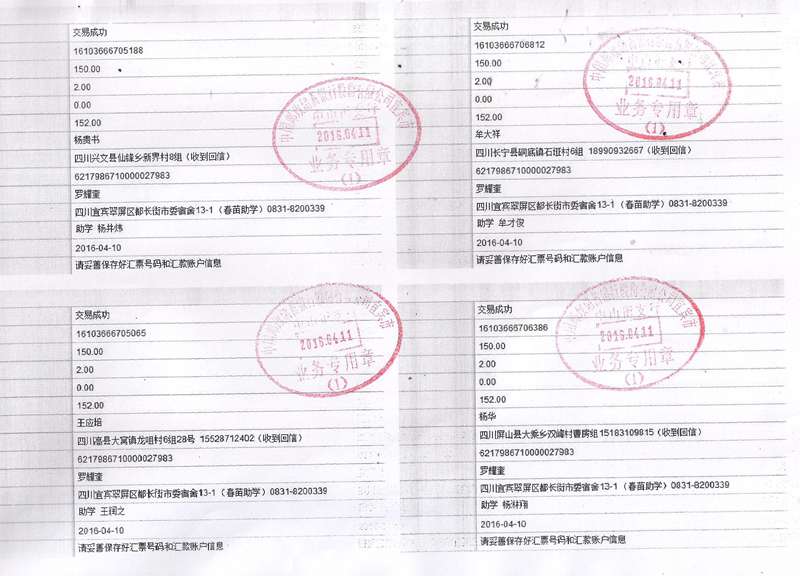 交易成功
16103666705188
150.00
2.00
0.00
152.00
杨贵书
四川兴文县仙峰乡新界村8组（收到回信）
6217986710000027983
罗耀奎
四川宜宾翠屏区都长街市委宿舍13-1（春苗助学）0831-8200339
助学 杨井炜
2016-04-10
请妥善保存好汇票号码和汇款账户信息
2016.04.11
业务专用章
(1)
交易成功
16103666706812
150.00
2.00
0.00
152.00
牟大祥
四川长宁县硐底镇石垭村6组 18990932667（收到回信）
6217986710000027983
罗耀奎
四川宜宾翠屏区都长街市委宿舍13-1（春苗助学）0831-8200339
助学 牟才俊
2016-04-10
请妥善保存好汇票号码和汇款账户信息
2016.04.11
业务专用章
(1)
交易成功
16103666705065
150.00
2.00
0.00
152.00
王应培
四川高县大窝镇龙咀村6组28号 15528712402（收到回信）
6217986710000027983
罗耀奎
四川宜宾翠屏区都长街市委宿舍13-1（春苗助学）0831-8200339
助学 王润之
2016-04-10
请妥善保存好汇票号码和汇款账户信息
2016.04.11
业务专用章
(1)
交易成功
16103666706386
150.00
2.00
0.00
152.00
杨华
四川屏山县大乘乡双峰村曹房组15183109815（收到回信）
6217986710000027983
罗耀奎
四川宜宾翠屏区都长街市委宿舍13-1（春苗助学）0831-8200339
助学 杨淋翔
2016-04-10
请妥善保存好汇票号码和汇款账户信息
2016.04.11
业务专用章
(1)